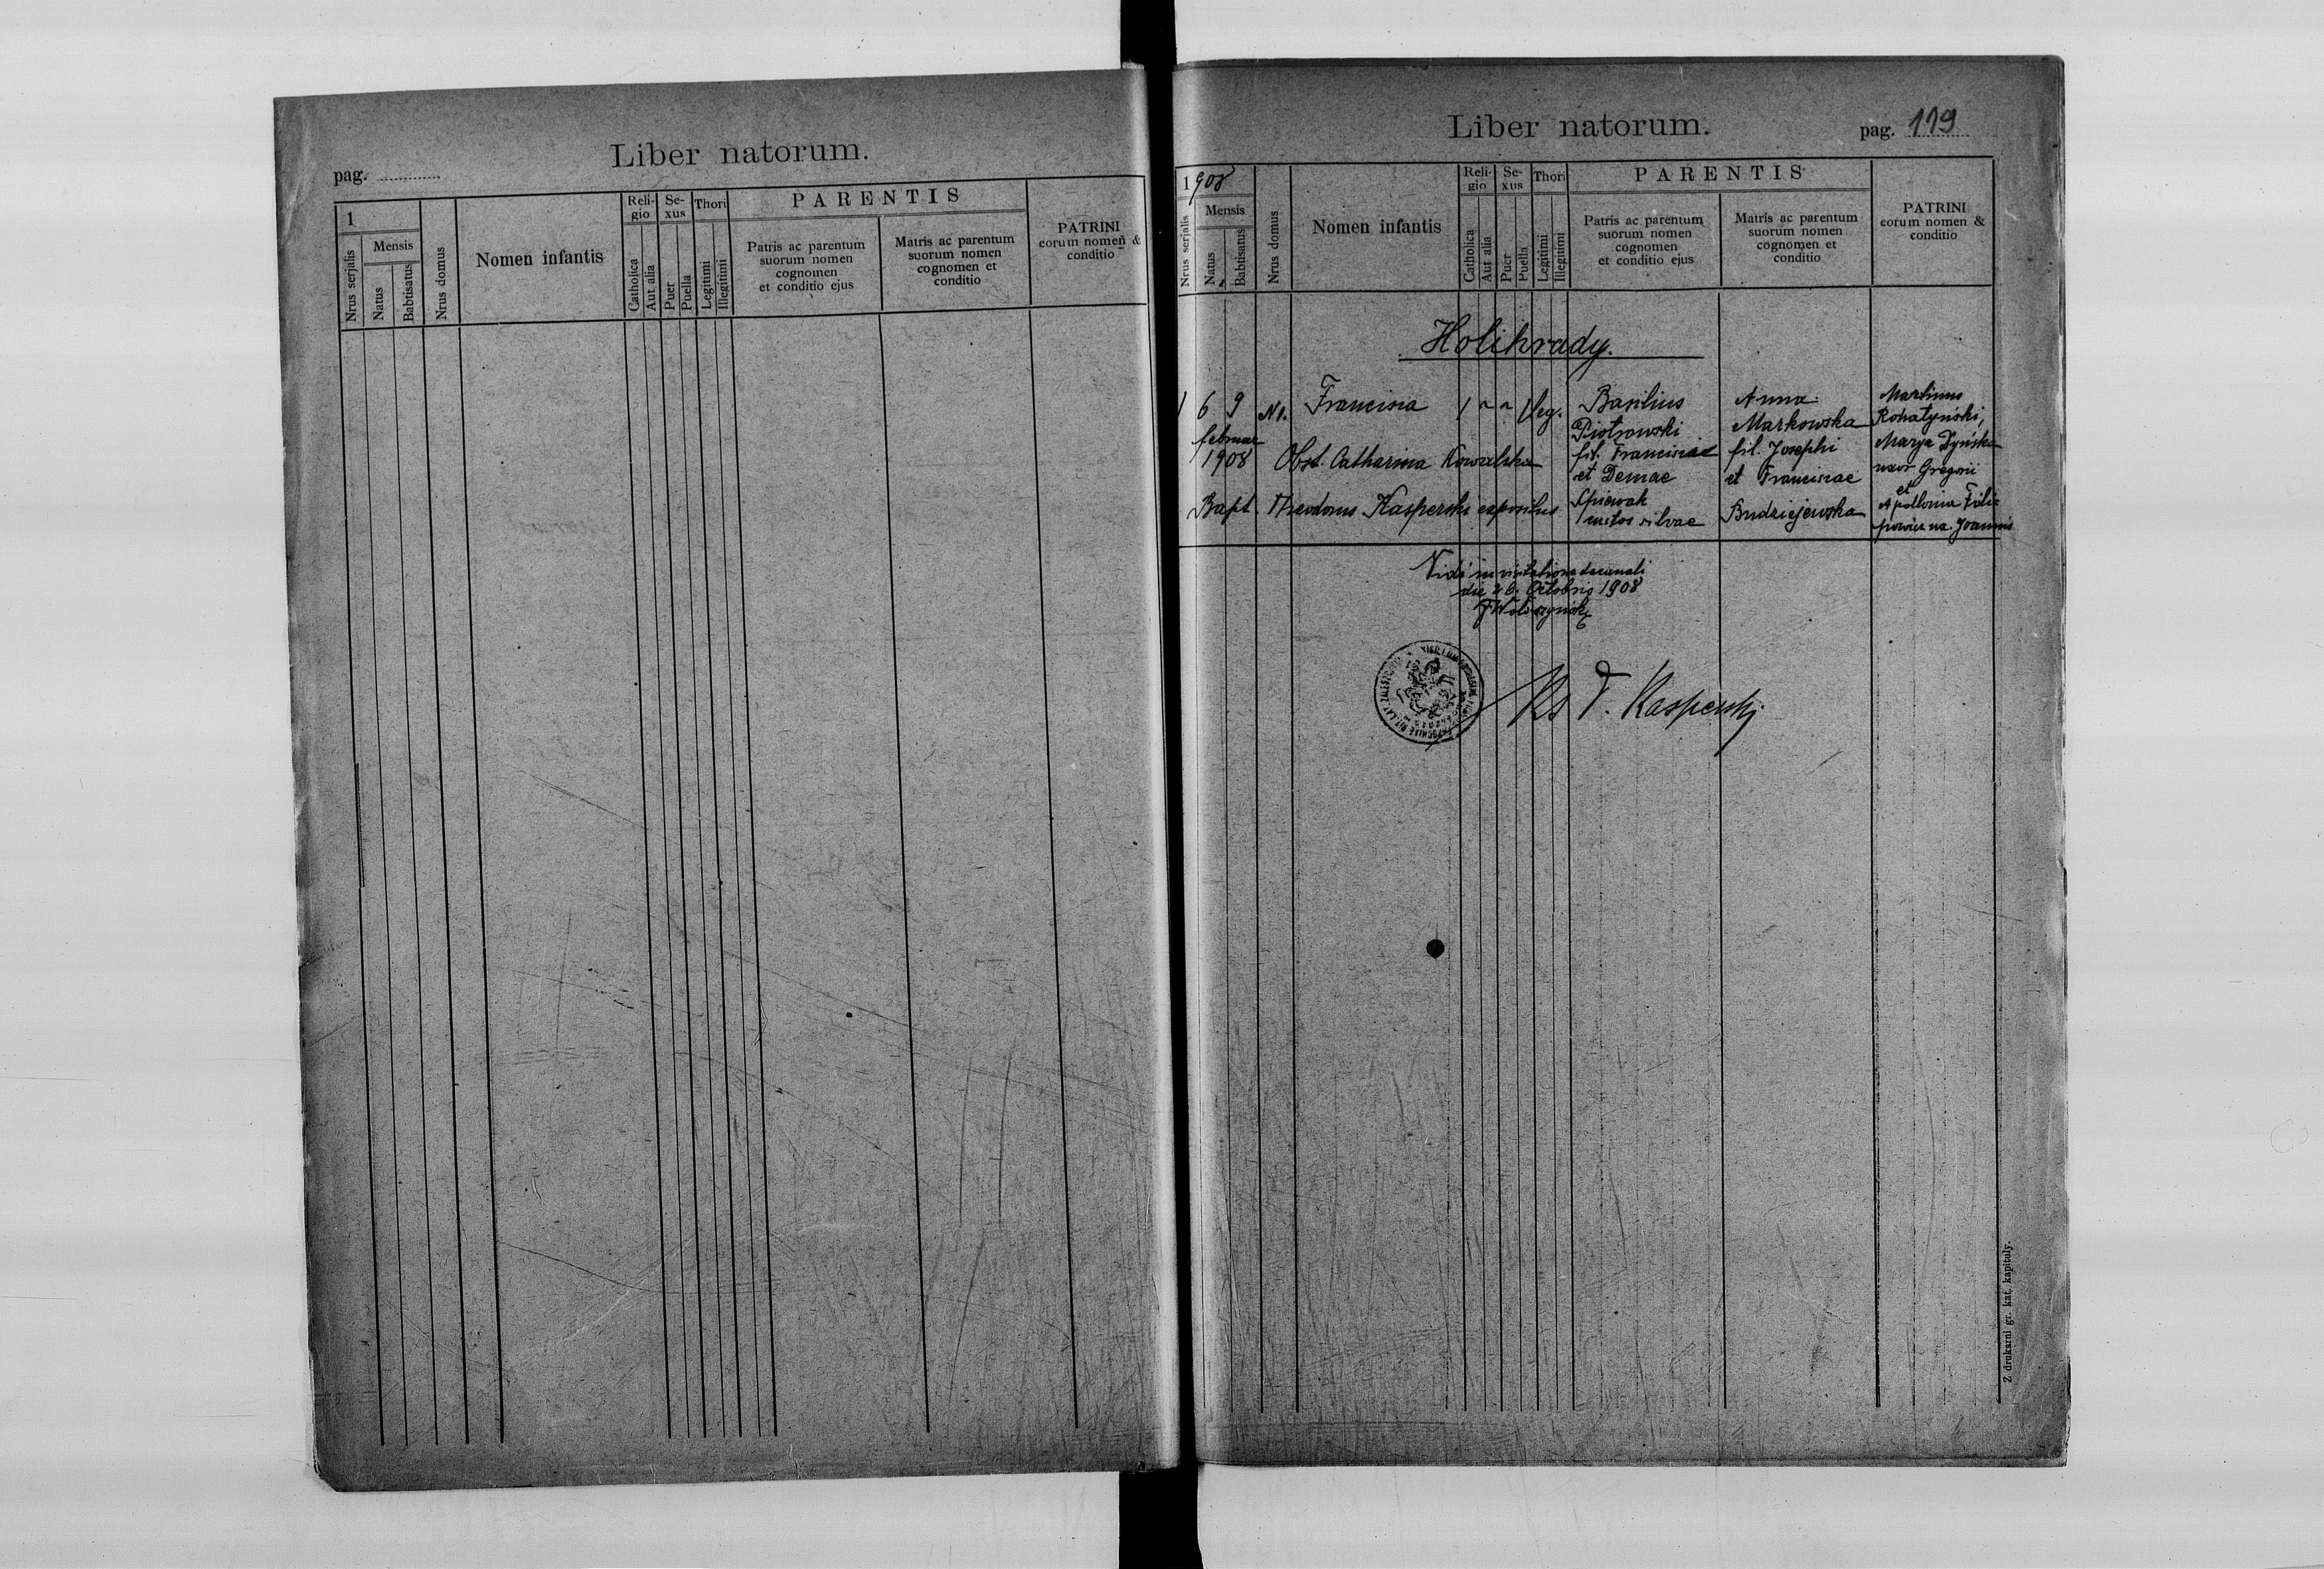 Liber natorum.
pag.
1
Nrus serjalis
Mensis
Natus
Babtisatus
Nrus domus
Nomen infantis
Reli-
gio
Catholica
Aut alia
Se-
xus
Puer
Puella
Thori
Legitimi
Illegitimi
PARENTIS
Patris ac parentum
suorum nomen
cognomen
et conditio ejus
Matris ac parentum
suorum nomen
cognomen et
conditio
PATRINI
eorum nomen &
conditio
Liber natorum.
pag. 119
1908
Nrus serjalis
Mensis
Natus
Babtisatus
Nrus domus
Nomen infantis
Reli-
gio
Catholica
Aut alia
Se-
xus
Puer
Puella
Thori
Legitimi
Illegitimi
PARENTIS
Patris ac parentum
suorum nomen
cognomen
et conditio ejus
Matris ac parentum
suorum nomen
cognomen et
conditio
PATRINI
eorum nomen &
conditio
Holihrady.
1 6 9 Francisca 1 ~ ~ 1 leg.
februar
1908 Obst. Catharina Kowalska
Bapt. Theodorus Kasperski expositus
Basilius
Piotrowski
fil. Franciscae
et
Spiewak
custos silvae
Anna
Markowska
fil. Josephi
et Franciscae
Budziejewska
Martinus
Rohatyński,
Marya
uxor Gregorii
et
Apollonia Fili-
powicz ux. Joannis
Vidi in visitatione decanali
die 26. Octobris 1908
Ks T. Kasperski
Z drukarni gr. kat. kapituły.